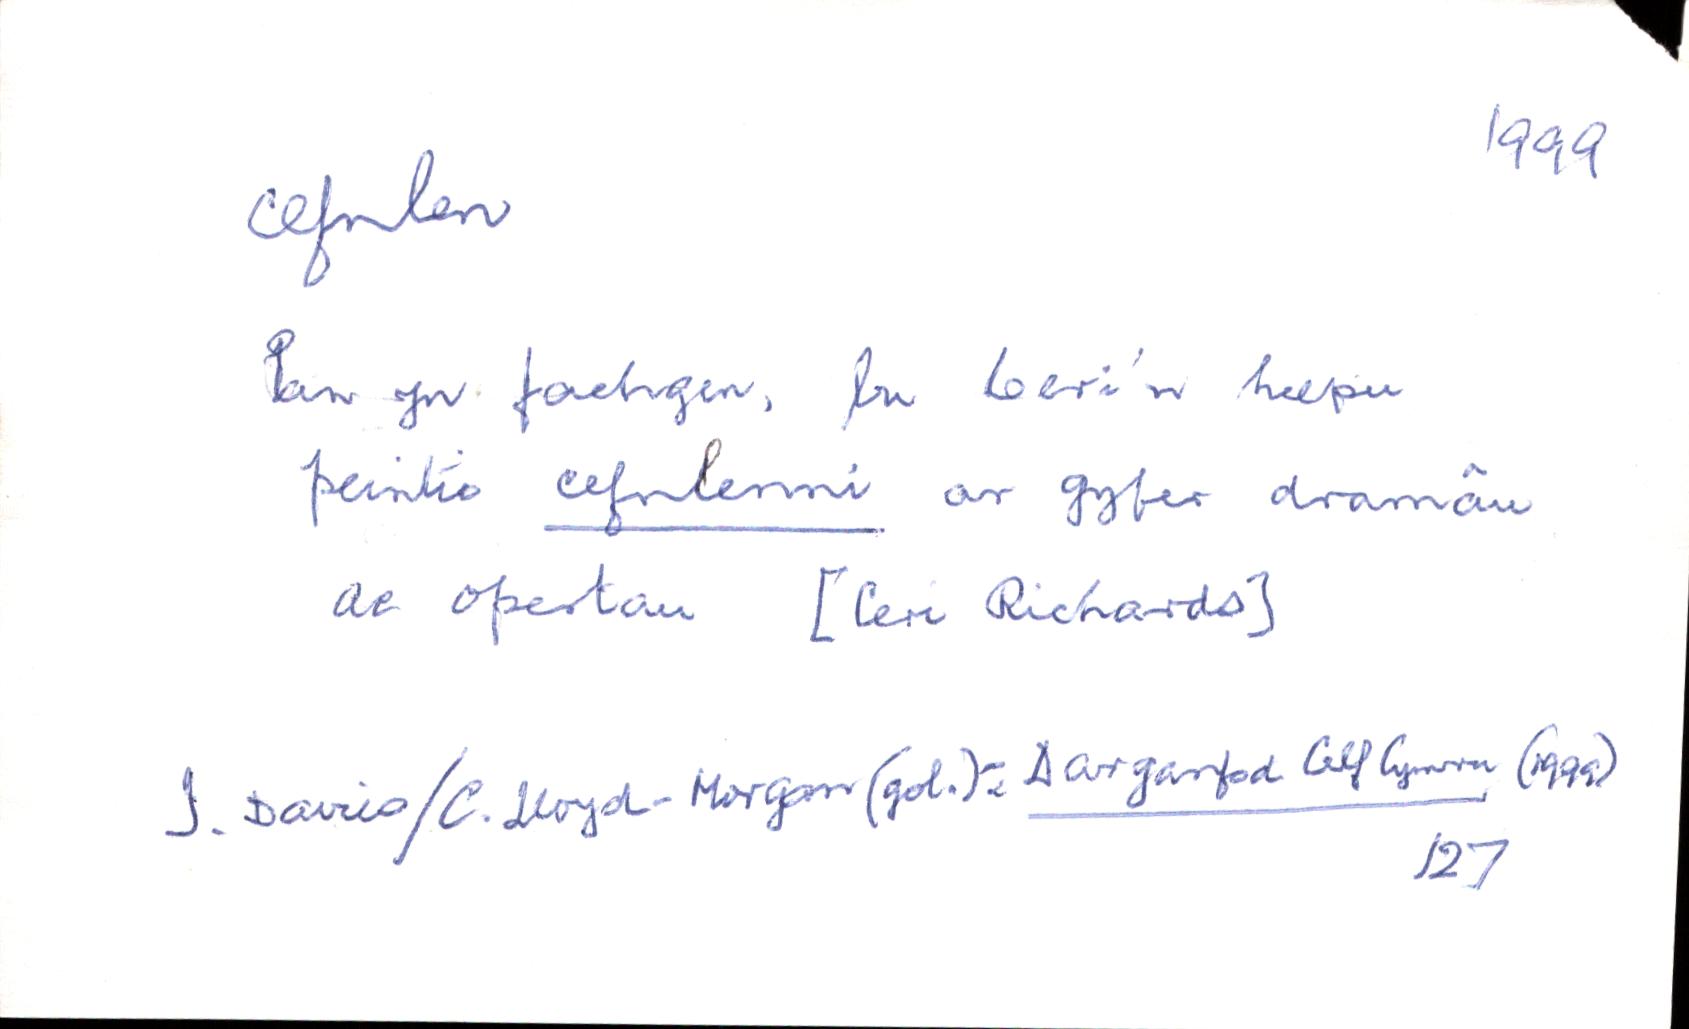 1999
cefnlen
Pan yn fachgen, bu Ceri'n helpu
peintio cefnlenni ar gyfer dramâu
ac operâu [Ceri Richards]
I. Davies/C. Lloyd-Morgan (gol.): Darganfod Celf Cymru (1999)
127